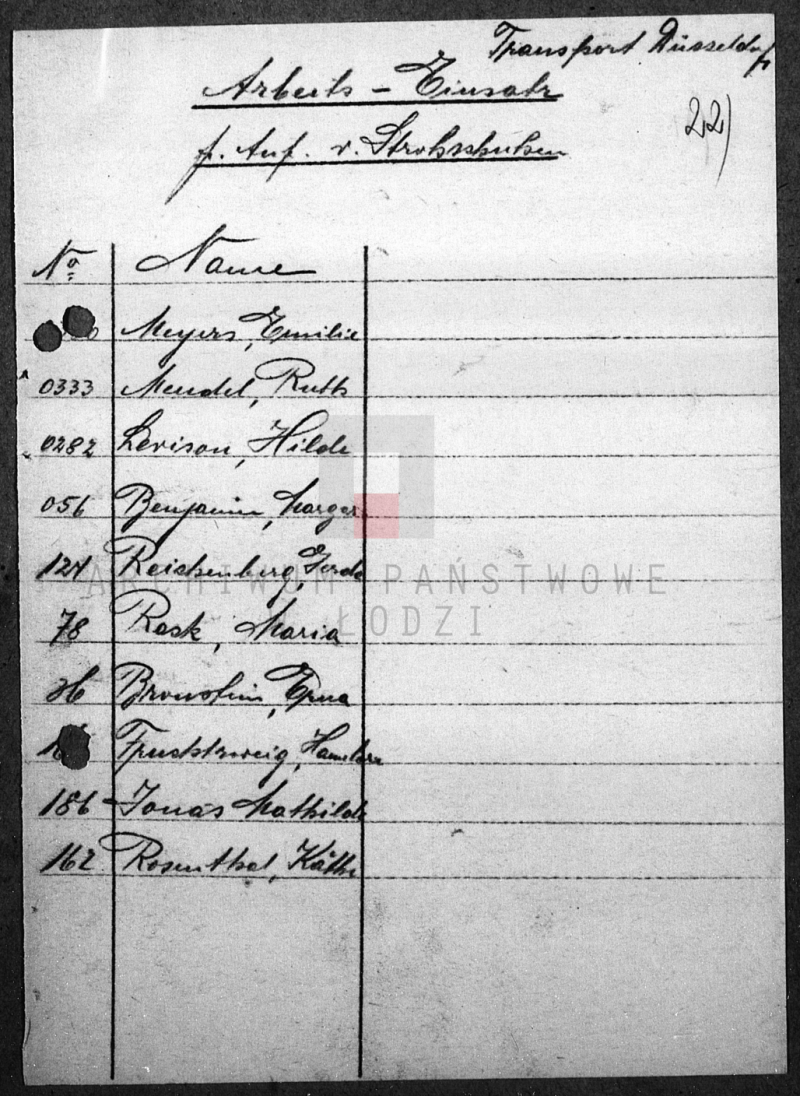 Transport Düsseldorf
Arbeits-Einsatz
22)
f. Anf. v. Strohschuhen
No Name
Meyers, Emilie
0333 Mendel, Ruth
0282 Levison, Hilde
056 Benjamin, Margar
124 Reichenberg, Gerda
78 Rask, Maria
36 Bronstein, Erna
Fruchtzweig, Hannelore
186 Jonas Mathilde
162 Rosenthal, Käthe
ARCHIWUM PAŃSTWOWE
ŁODZI